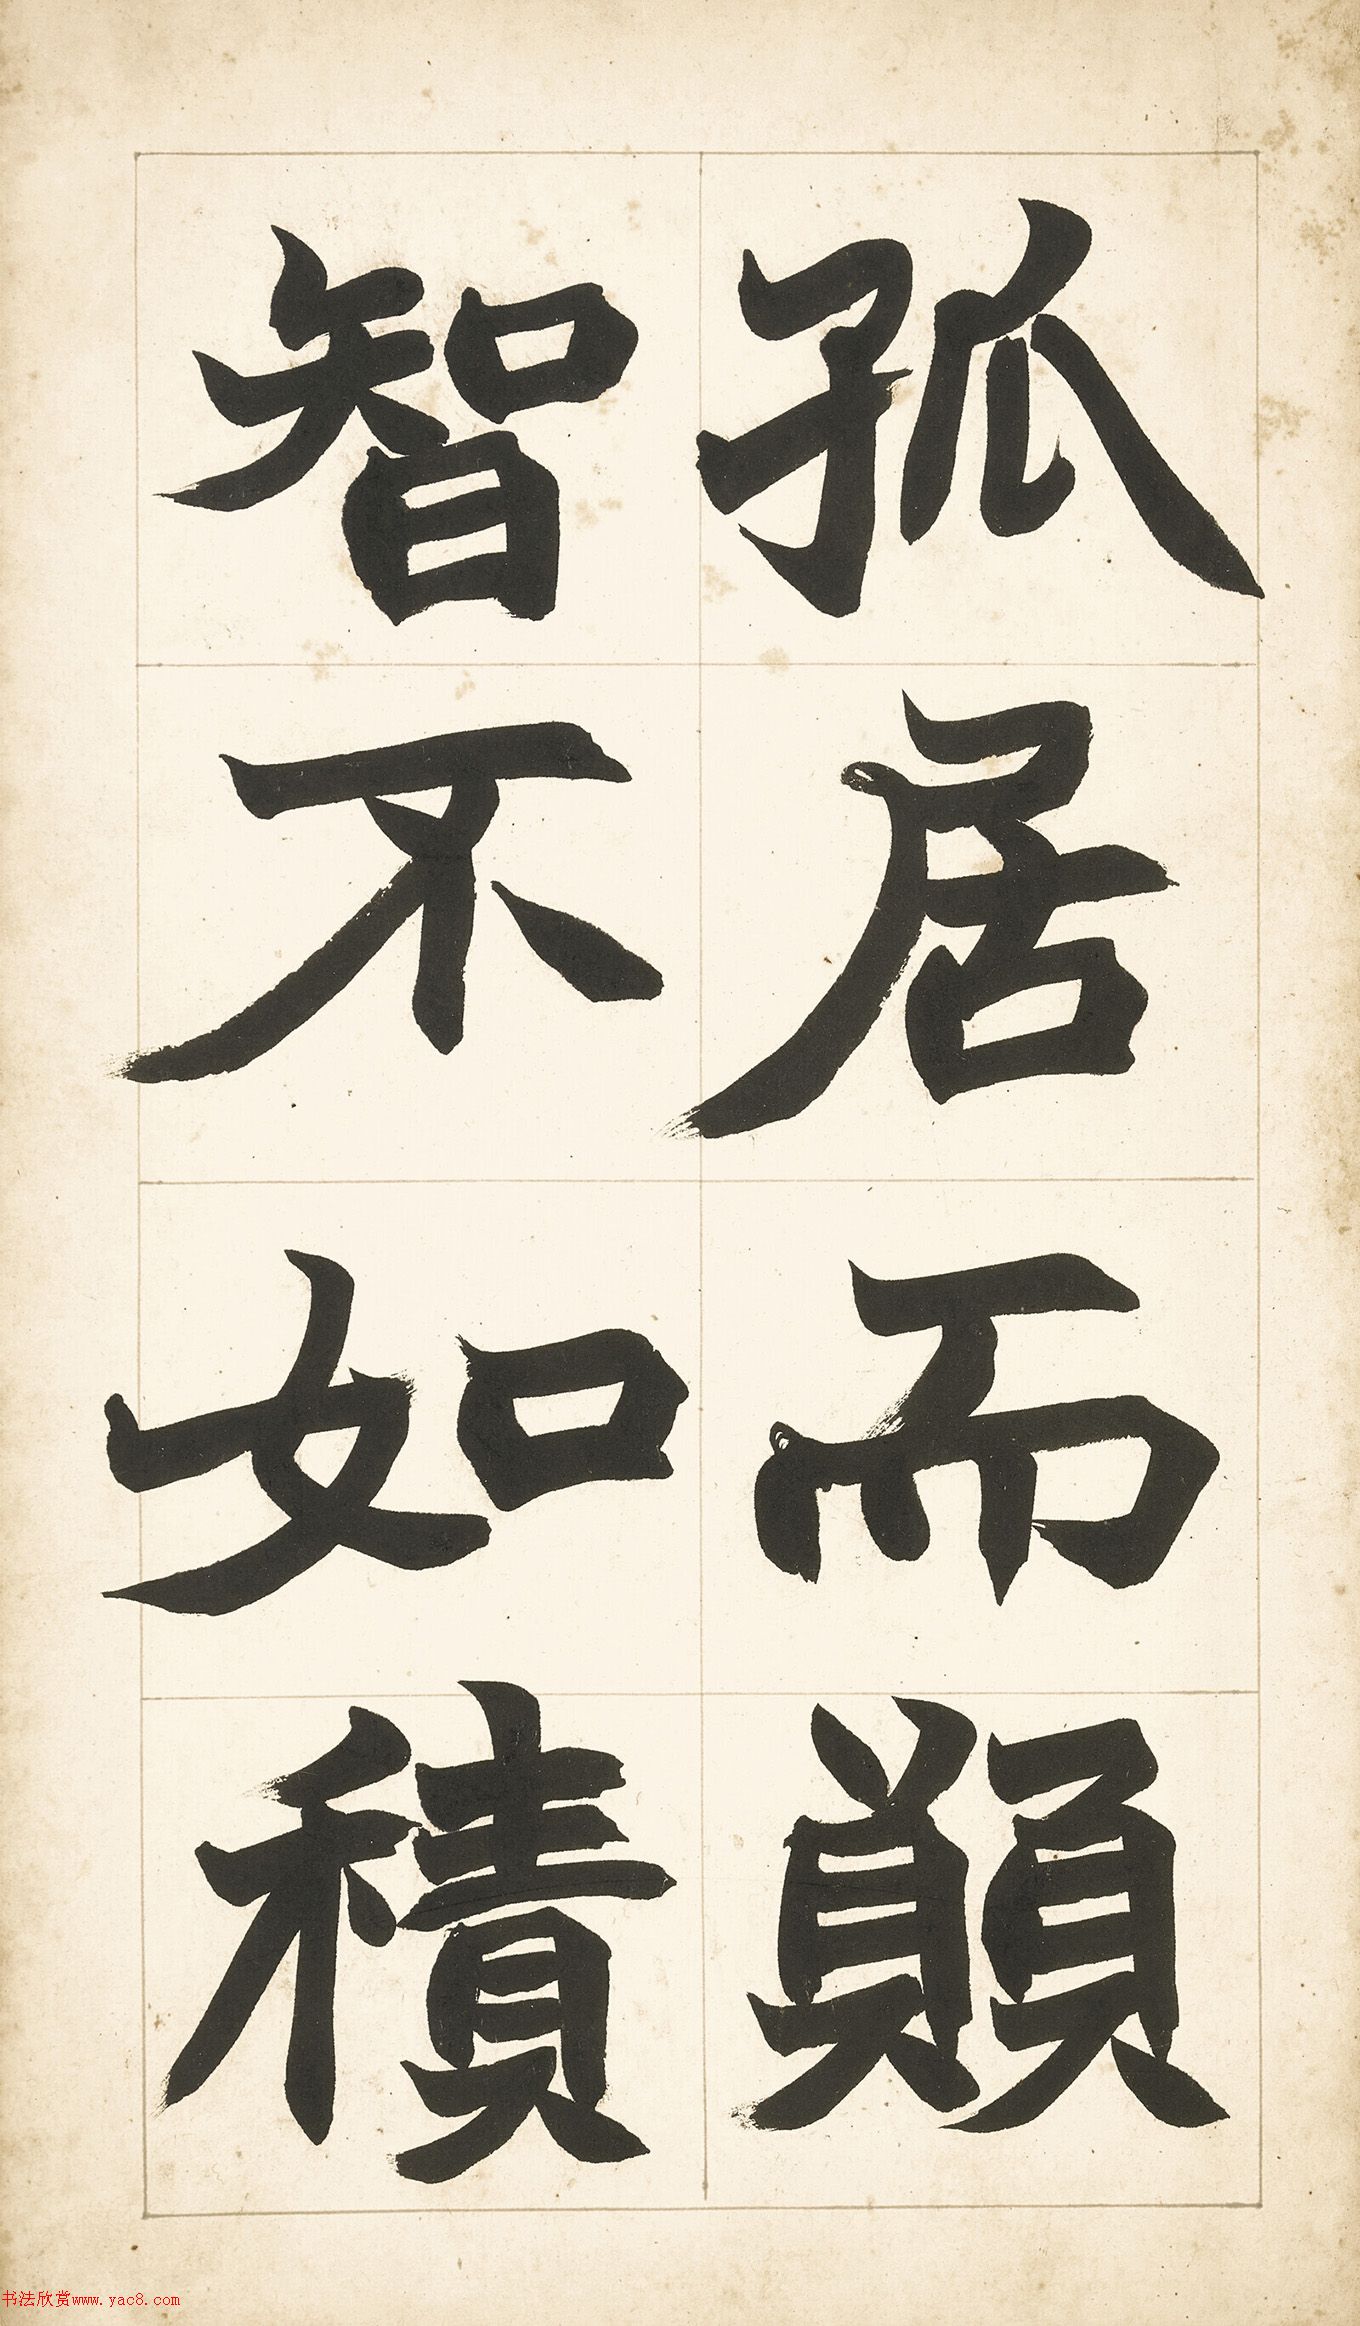 孤居而願
智不如積
书法欣赏www.yac8.com